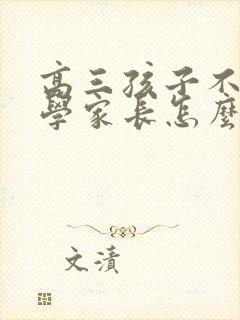 高三孩子不
學家長怎麼
文渍